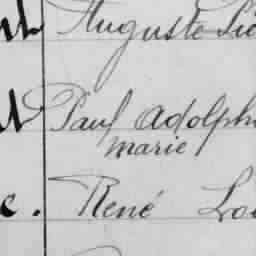 Auguste
Paul Adolph
marie
c. René Lo